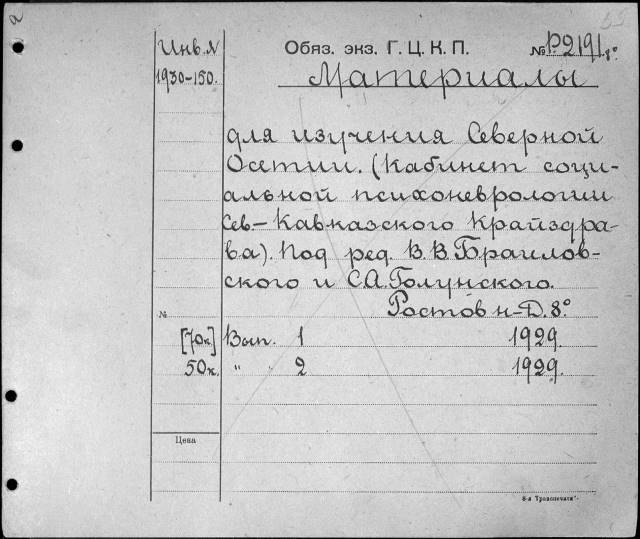 Инв. №
1930-150.
Обяз. экз. Г. Ц. К. П.
№ Р2191.8°
Материалы
для изучения Северной
Осетии. (Кабинет соци-
альной психоневрологии
Сев-Кавказского Крайздра-
ва). Под ред. В.В. Браилов-
ского и С.А. Голунского.
Ростов н-Д. 8°
№
[70к.] Вып. 1 1929.
50к. " 2 1929.
Цена